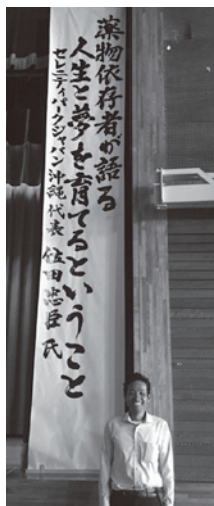 薬物依存者が語る
人生と夢を育てるということ
セレニティパークジャパン沖縄代表 佐田忠臣氏